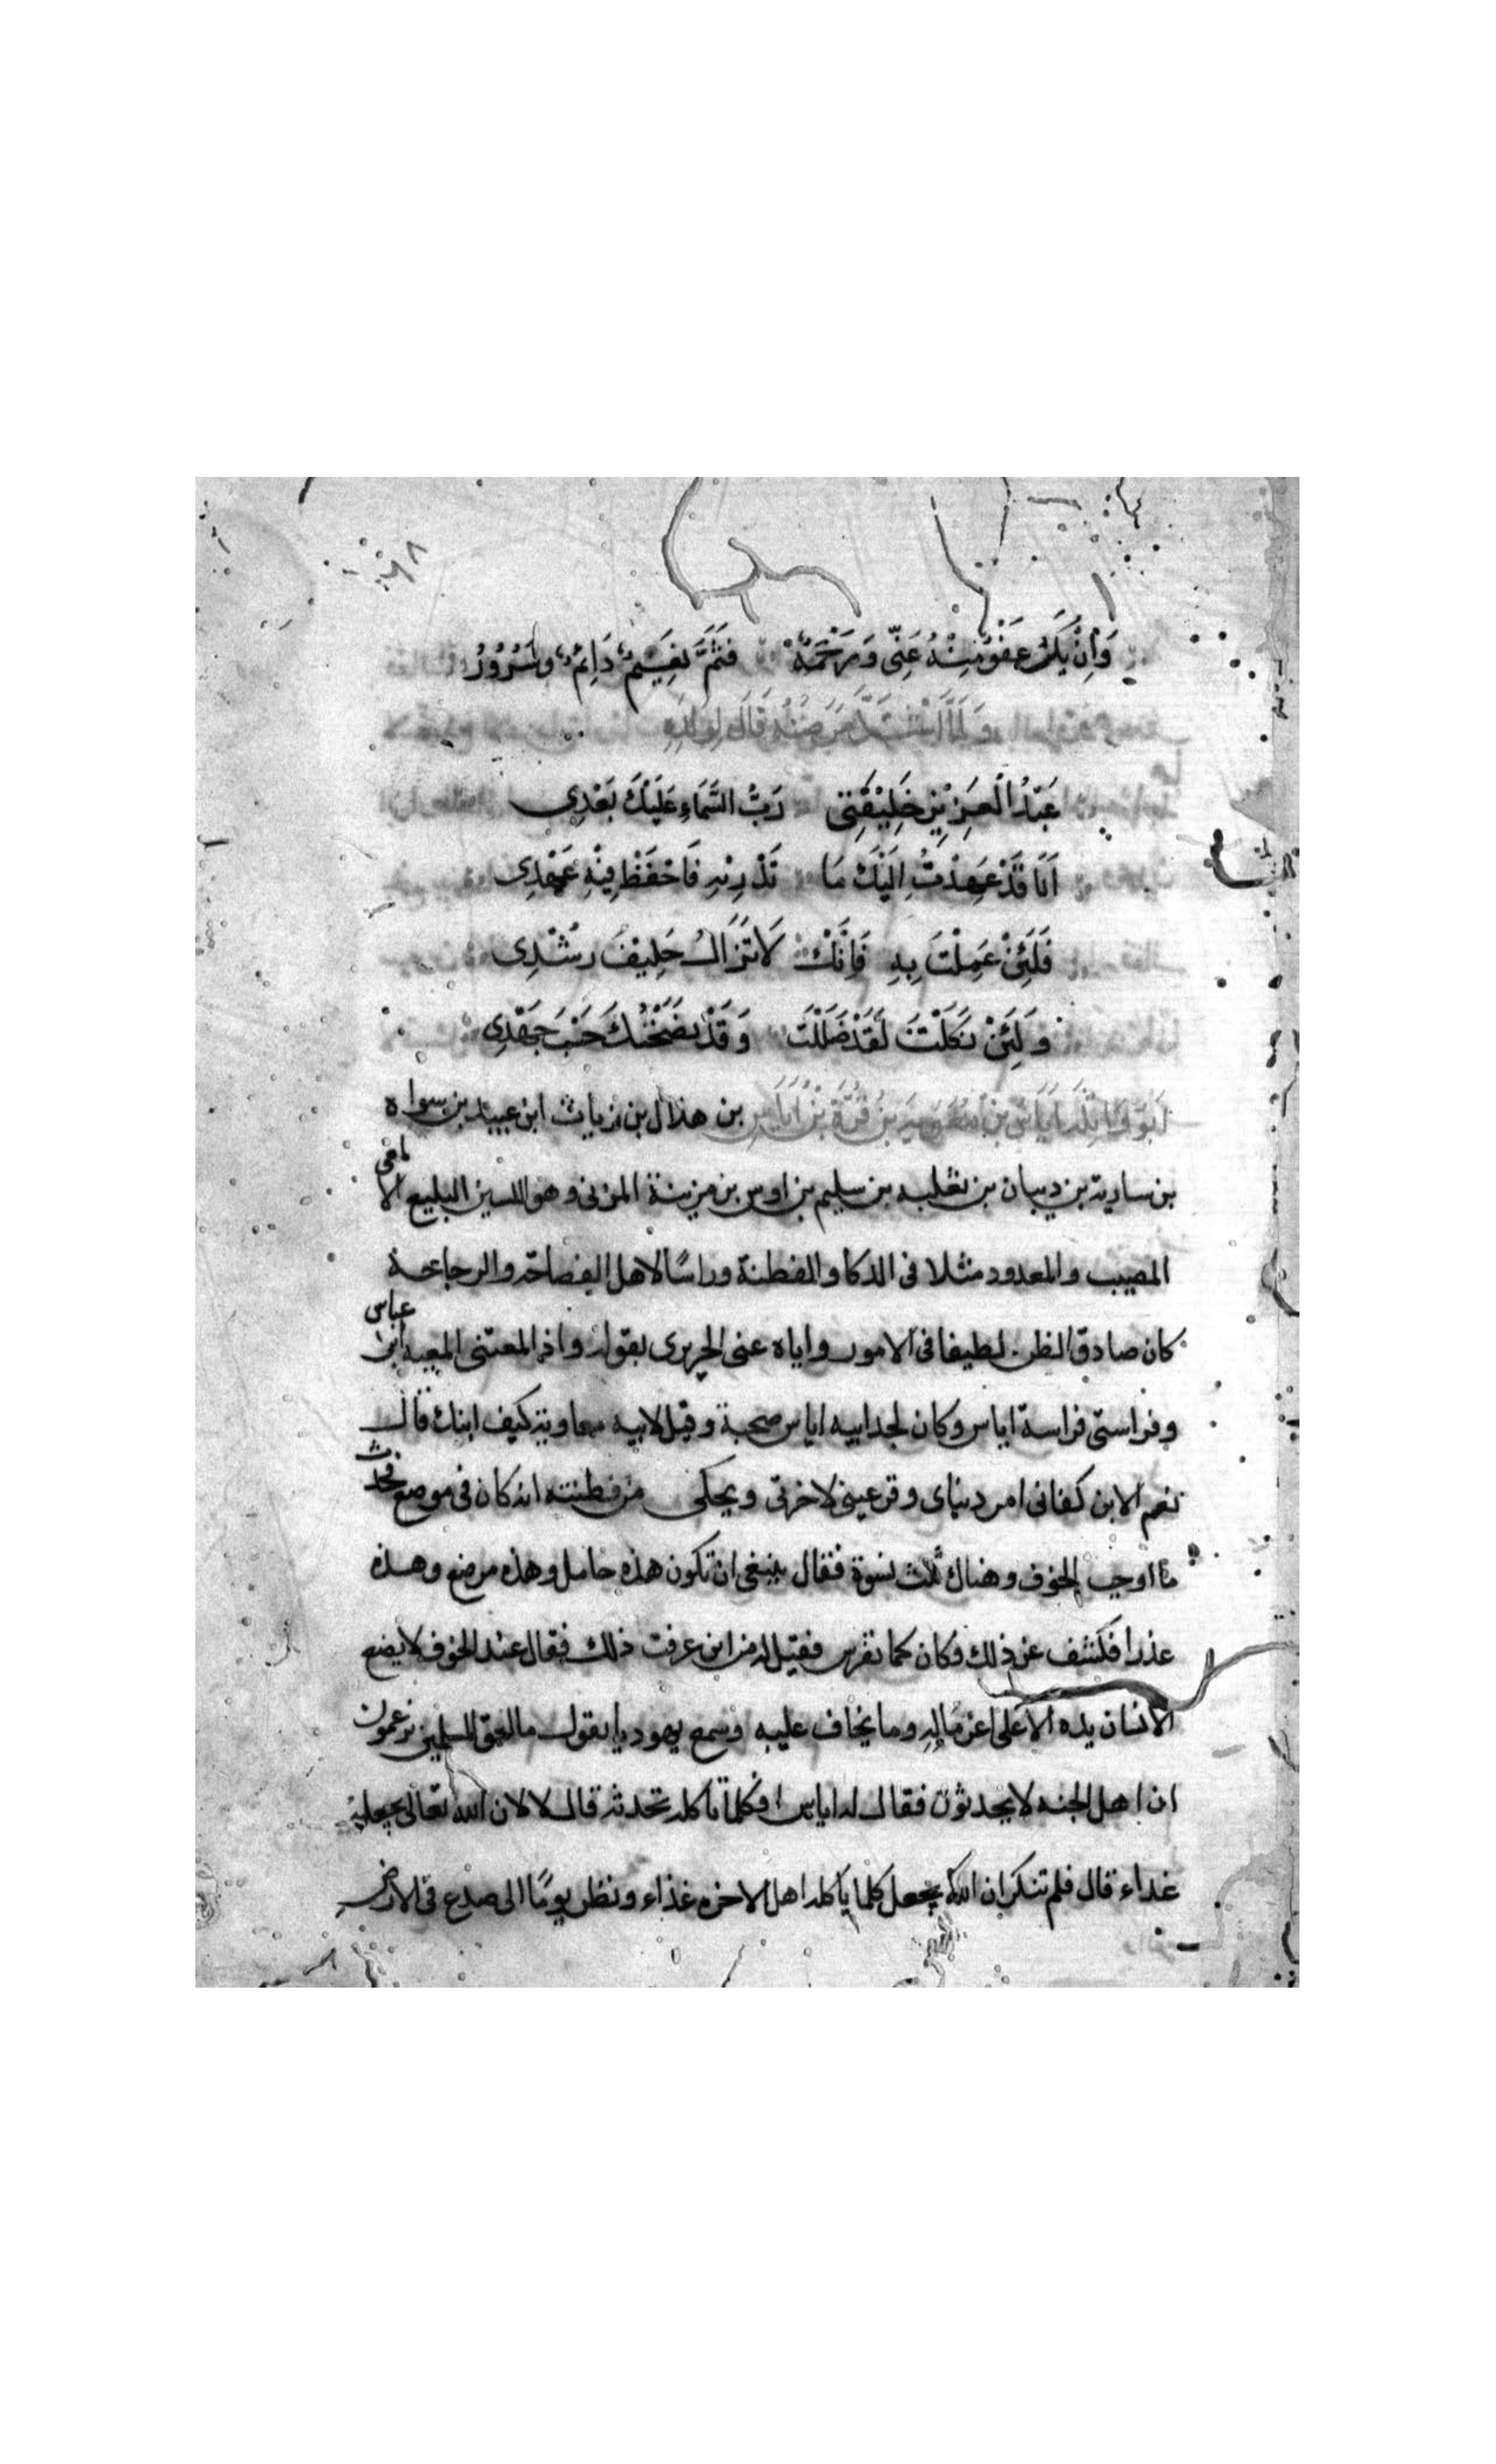 وَاِنْ يَكُ عَفْوٌ مِنْهُ عَنِّى وَرَحْمَةٌ فَثَمَّ نَعِيْمٌ دَائِمٌ وسُرُوْرُ
وَلَمَّا اشْتَدَّ مَرَضُهُ قَالَ لِوَلَدِهِ
عَبْدُ الْعَزِيْزِ خَلِيْفَتِى رَبُّ السَّمَاءِ عَلَيْكَ بَعْدِى
اَنَا قَدْ عَهِدْتُ اِلَيْكَ مَا تَدْرِيْهِ فَاحْفَظْ فِيْهِ عَهْدِى
فَلَئِنْ عَمِلْتَ بِهِ فَاِنَّكَ لَا تَزَالُ حَلِيْفَ رُشْدِى
وَلَئِنْ نَكَلْتَ لَقَدْ ضَلَلْتَ وَقَدْ نَصَحْتُكَ حَسْبَ جَهْدِى
اَبُوْ وَاثِلَه اَيَاسُ بْنُ مُعَوِيَه بْنُ قُرَّة بْنُ اَيَاسِ بن هذال بن زياث ابن عبيد بن سواه
بن سارية بن ديبان بن ثعلبه بن سليم بن اوس بن مزينة المزنى وهو اللسين البليغ الالمعى
المصيب والمعدود مثلا فى الدكا والفطنة وراسًا لاهل الفصاحة والرجاحة
كان صادق الظن لطيفا فى الامور واياه عنى الحريرى بقوله واذ المعتنى المعيه ابن عباس
وفراستى فراسة اياس وكان لجد ابيه اياس صحبة وقيل لابيه معاوية كيف ابنك قال
نعم الابن كفانى امر دنياى وفرغنى لاخرتى ويحكى من فطنته انه كان فى موضع فحدث
ما اوجب الخوف وهناك ثلث نسوة فقال ينبغى ان تكون هذه حامل وهذه مرضع وهذه
عذرا فكشف عن ذلك فكان كما تفرس فقيل له من اين عرفت ذلك فقال عند الخوف لا يضع
الانسان يده الا على اعز ماله وما يخاف عليه وسمع يهوديا يقول ما احمق المسلمين يزعمون
ان اهل الجنه لا يحدثون فقال له اياس افكلما تاكله تحدثه قال لا لان الله تعالى يجعله
غداء قال فلم تنكر ان الله يجعل كلما ياكله اهل الاخره غذاء ونظر يومًا الى صدع فى الارض